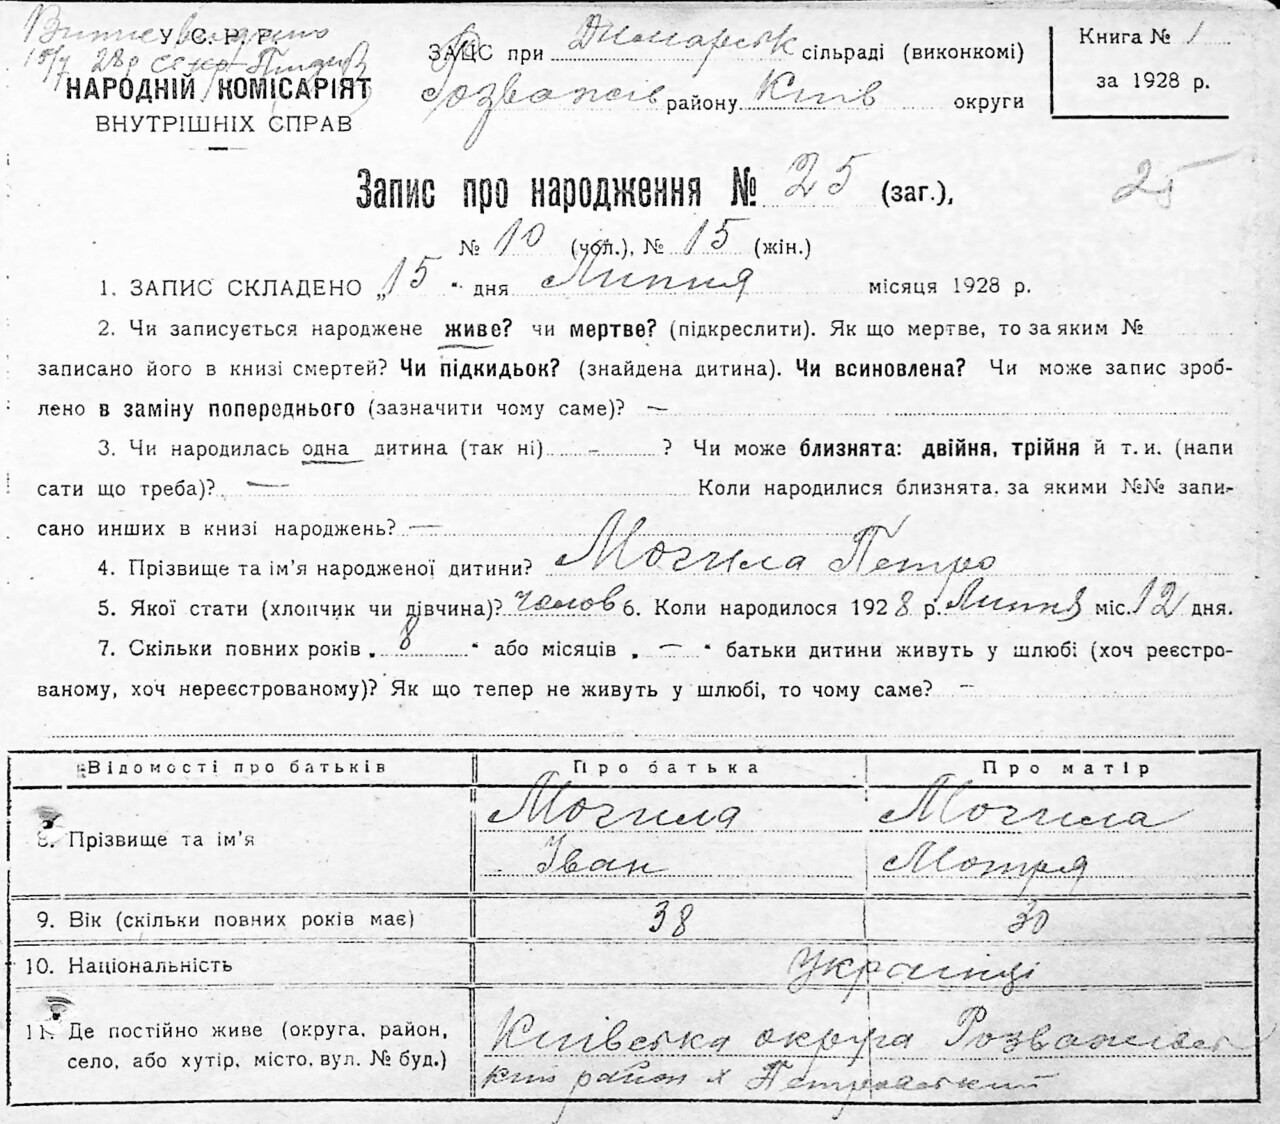 У. С. Р. Р.
15/7 28р
НАРОДНІЙ КОМІСАРІЯТ
ВНУТРІШНІХ СПРАВ
ЗАЦС при Димарськ сільраді (виконкомі)
Розважів району Київ округи
Книга № 1
за 1928 р.
Запис про народження № 25 (заг.),
25
№ 10 (чол.), № 15 (жін.)
1. ЗАПИС СКЛАДЕНО „15 “ дня Липня місяця 1928 р.
2. Чи записується народжене живе? чи мертве? (підкреслити). Як що мертве, то за яким №
записано його в книзі смертей? Чи підкидьок? (знайдена дитина). Чи всиновлена? Чи може запис зроб-
лено в заміну попереднього (зазначити чому саме)? —
3. Чи народилась одна дитина (так ні) - ? Чи може близнята: двійня, трійня й т. и. (напи
сати що треба)? — Коли народилися близнята. за якими №№ запи-
сано инших в книзі народжень? —
4. Прізвище та ім'я народженої дитини? Могила Петро
5. Якої стати (хлопчик чи дівчина)? чолов 6. Коли народилося 1928 р. Липня міс. 12 дня.
7. Скільки повних років „ 8 “ або місяців „ — “ батьки дитини живуть у шлюбі (хоч реєстро-
ваному, хоч нереєстрованому)? Як що тепер не живуть у шлюбі, то чому саме? —
Відомості про батьків Про батька Про матір
8. Прізвище та ім'я Могила Іван Могила Мотря
9. Вік (скільки повних років має) 38 30
10. Національність Українці
11. Де постійно живе (округа, район,
село, або хутір, місто, вул. № буд.)
Київська округа Розважівсь
кий район х Петровський